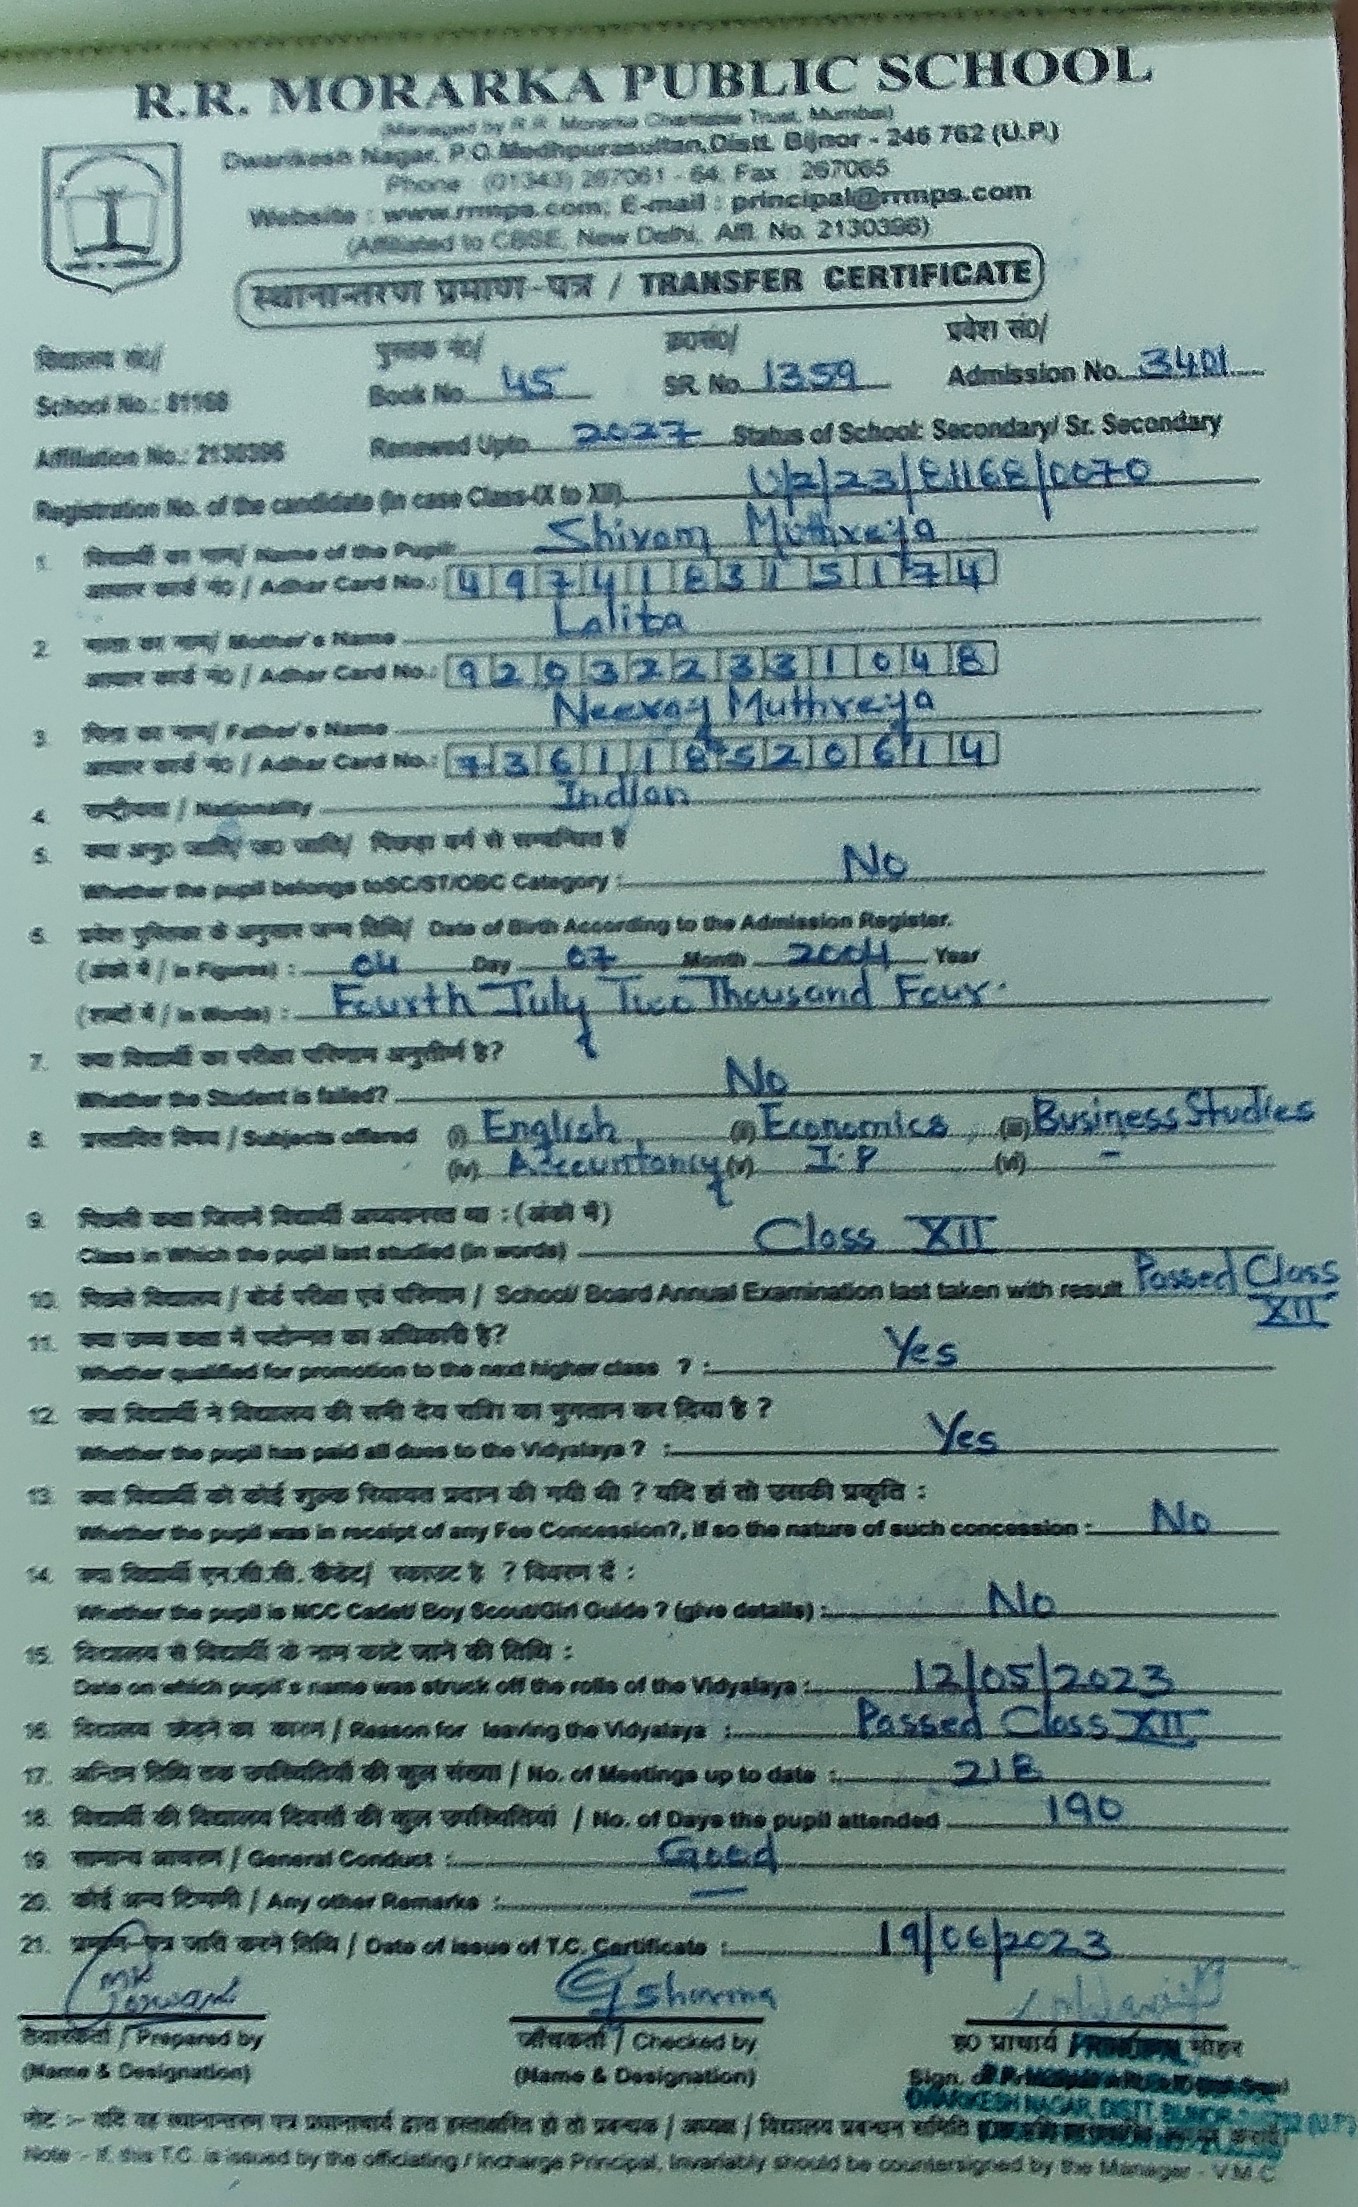 R.R. MORARKA PUBLIC SCHOOL
(Managed by R.R. Morarka Charitable Trust, Mumbai)
Dwarikesh Nagar, P.O. Medhpurasultan, Distt. Bijnor - 246 762 (U.P.)
Phone : (01343) 267061 - 64, Fax : 267065
Website : www.rrmps.com; E-mail : principal@rrmps.com
(Affiliated to CBSE, New Delhi, Affl. No. 2130396)
स्थानान्तरण प्रमाण-पत्र / TRANSFER CERTIFICATE
विद्यालय सं०/ पुस्तक नं०/ क्र०सं०/ प्रवेश सं०/
School No.: 81168 Book No. 45 SR. No. 1359 Admission No. 3401
Affiliation No.: 2130396 Renewed Upto 2027 Status of School: Secondary/ Sr. Secondary
Registration No. of the candidate (in case Class-IX to XII) U/2/23/81168/0070
1. विद्यार्थी का नाम/ Name of the Pupil: Shivam Muthreja
आधार कार्ड नं० / Adhar Card No.: 497418315174
2. माता का नाम/ Mother's Name Lalita
आधार कार्ड नं० / Adhar Card No.: 920322331048
3. पिता का नाम/ Father's Name Neeraj Muthreja
आधार कार्ड नं० / Adhar Card No.: 736118520614
4. राष्ट्रीयता / Nationality Indian
5. क्या अनु० जाति/ ज० जाति/ पिछड़ा वर्ग से सम्बन्धित है
Whether the pupil belongs toSC/ST/OBC Category : No
6. प्रवेश पुस्तिका के अनुसार जन्म तिथि/ Date of Birth According to the Admission Register.
(अंको में / in Figures) : 04 Day 07 Month 2004 Year
(शब्दों में / in Words) : Fourth July Two Thousand Four.
7. क्या विद्यार्थी का परीक्षा परिणाम अनुत्तीर्ण है?
Whether the Student is failed? No
8. प्रस्तावित विषय / Subjects offered (i) English (ii) Economics (iii) Business Studies
(iv) Accountancy (v) I.P (vi) -
9. पिछली कक्षा जिसमें विद्यार्थी अध्ययनरत था : (अंको में)
Class in Which the pupil last studied (in words) Class XII
10. पिछले विद्यालय / बोर्ड परीक्षा एवं परिणाम / School/ Board Annual Examination last taken with result Passed Class XII
11. क्या उच्च कक्षा में पदोन्नत का अधिकारी है?
Whether qualified for promotion to the next higher class ? : Yes
12. क्या विद्यार्थी ने विद्यालय की सभी देय राशि का भुगतान कर दिया है ?
Whether the pupil has paid all dues to the Vidyalaya ? : Yes
13. क्या विद्यार्थी को कोई शुल्क रियायत प्रदान की गयी थी ? यदि हां तो उसकी प्रकृति :
Whether the pupil was in receipt of any Fee Concession?, if so the nature of such concession : No
14. क्या विद्यार्थी एन.सी.सी. कैडेट/ स्काउट है ? विवरण दें :
Whether the pupil is NCC Cadet/ Boy Scout/Girl Guide ? (give details) : No
15. विद्यालय से विद्यार्थी के नाम काटे जाने की तिथि :
Date on which pupil's name was struck off the rolls of the Vidyalaya : 12/05/2023
16. विद्यालय छोड़ने का कारण / Reason for leaving the Vidyalaya : Passed Class XII
17. अन्तिम तिथि तक उपस्थितियों की कुल संख्या / No. of Meetings up to date : 218
18. विद्यार्थी की विद्यालय दिवसों की कुल उपस्थितियां / No. of Days the pupil attended 190
19. सामान्य आचरण / General Conduct : Good
20. कोई अन्य टिप्पणी / Any other Remarks : —
21. प्रमाण-पत्र जारी करने तिथि / Date of issue of T.C. Certificate : 19/06/2023
GSharma
तैयारकर्ता / Prepared by जाँचकर्ता / Checked by ह० प्राचार्य PRINCIPAL मोहर
(Name & Designation) (Name & Designation) Sign. of
DWARIKESH NAGAR, DISTT. BIJNOR-246762 (U.P.)
नोट :- यदि यह स्थानान्तरण पत्र प्रधानाचार्य द्वारा हस्ताक्षरित हो तो प्रबन्धक / अध्यक्ष / विद्यालय प्रबन्धन समिति
Note :- If, this T.C. is issued by the officiating / Incharge Principal, Invariably should be countersigned by the Manager - V.M.C